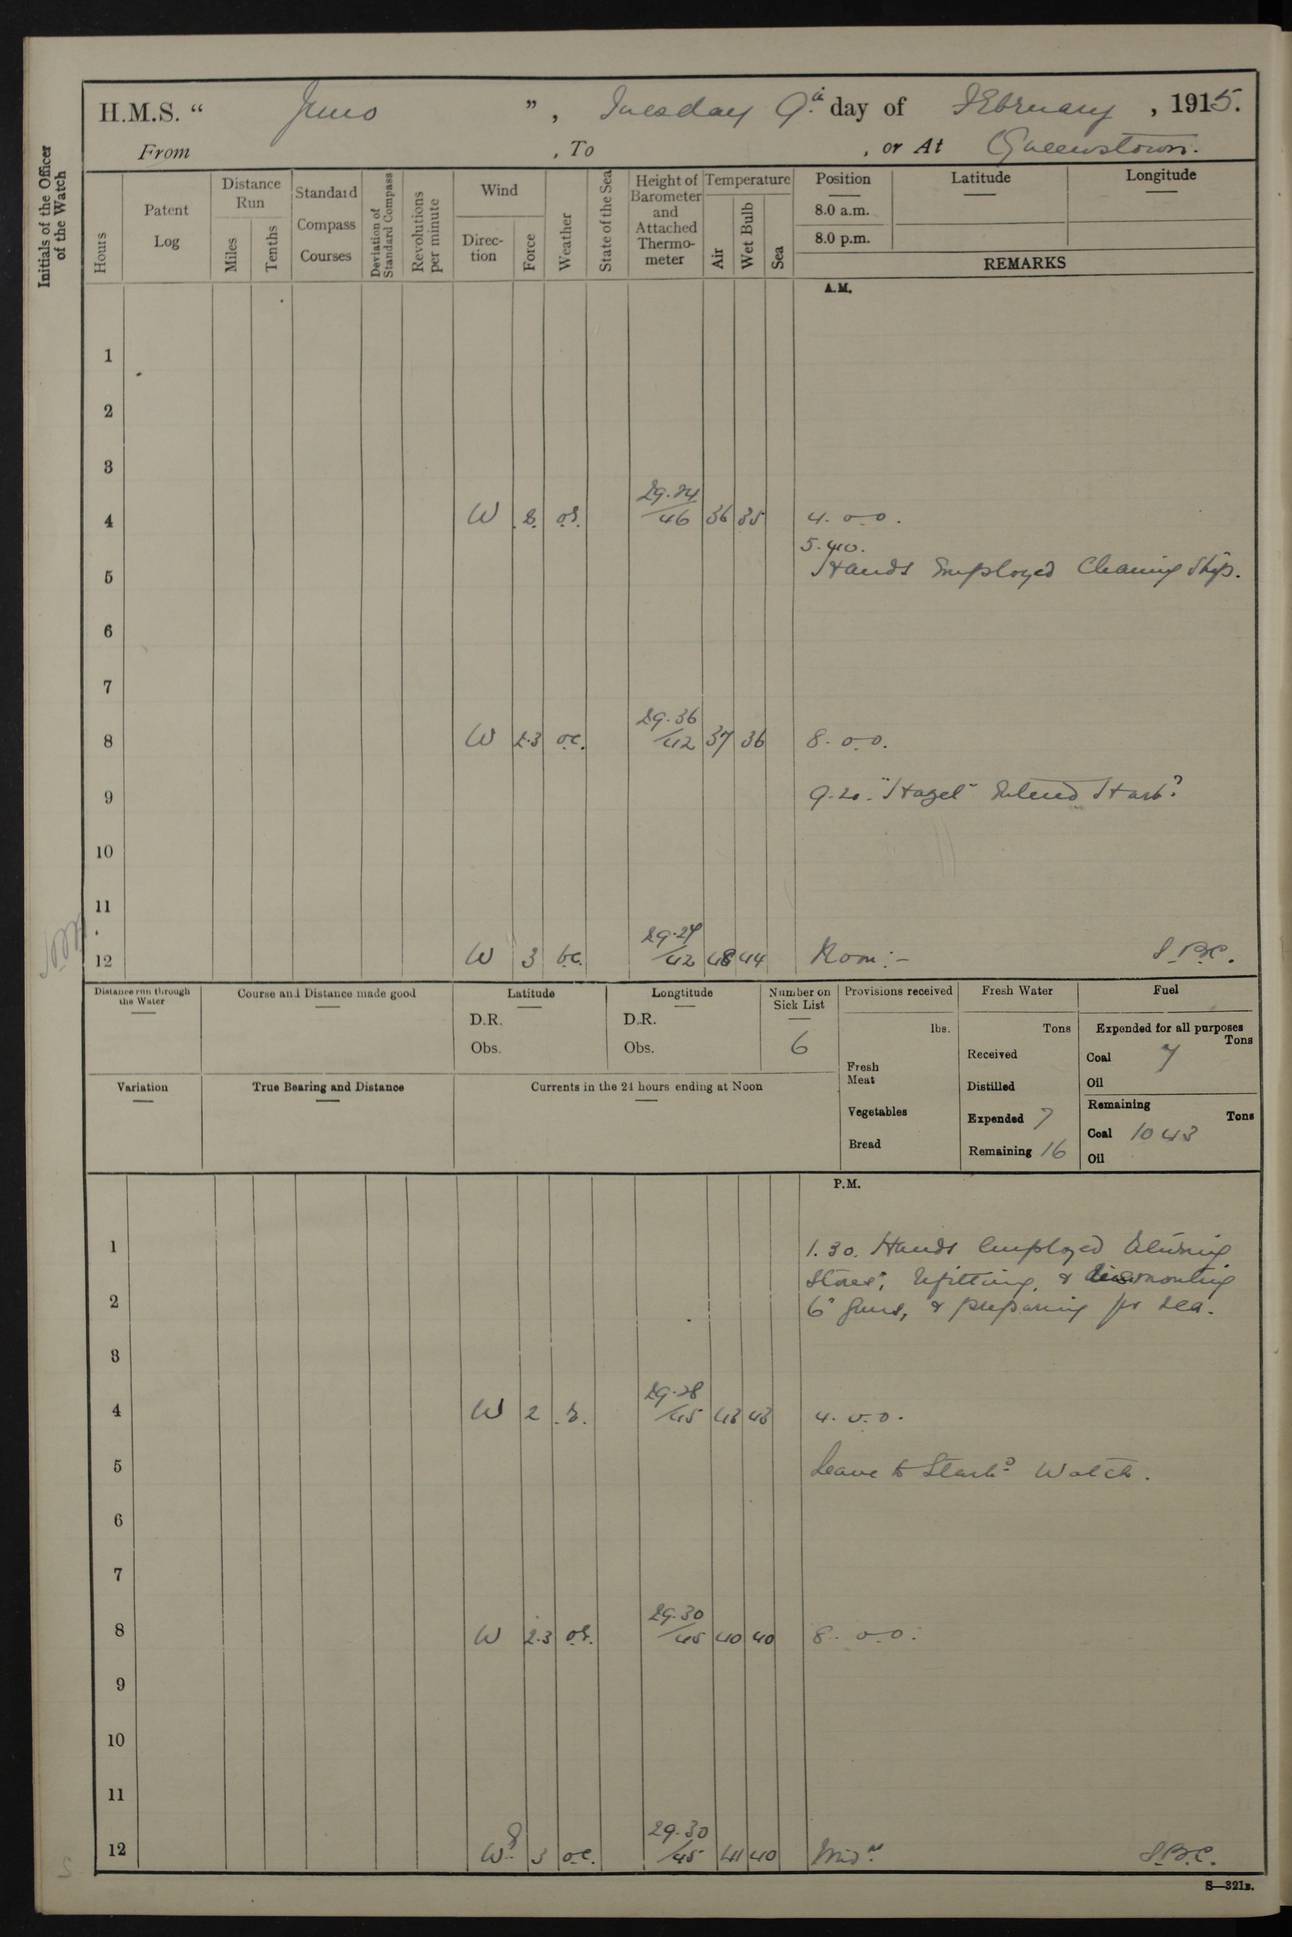 H.M.S. “ Juno ”, Tuesday 9th day of February, 1915.
From , To , or At Queenstown.
Initials of the Officer of the Watch
Hours
Patent Log
Distance Run
Miles
Tenths
Standard Compass Courses
Deviation of Standard Compass
Revolutions per minute
Wind
Direction
Force
Weather
State of the Sea
Height of Barometer and Attached Thermometer
Temperature
Air
Wet Bulb
Sea
Position
Latitude
Longitude
8.0 a.m.
8.0 p.m.
REMARKS
A.M.
1
2
3
29.24
4 W 2 or. /46 36 35 4. 0.0.
5.40.
5 Hands Employed Cleaning Ship.
6
7
29.36
8 W 2.3 oc. /42 37 36 8. 0.0.
9 9.20. "Hazel" Entered Harbr
10
11
29.27
12 W 3 bc. /42 48 44 Noon:- S.B.C.
Distance run through the Water
Course and Distance made good
Latitude
D.R.
Obs.
Longtitude
D.R.
Obs.
Number on Sick List
6
Provisions received
lbs.
Fresh Meat
Vegetables
Bread
Fresh Water
Tons
Received
Distilled
Expended 7
Remaining 16
Fuel
Expended for all purposes
Tons
Coal 7
Oil
Remaining
Tons
Coal 1043
Oil
Variation
True Bearing and Distance
Currents in the 24 hours ending at Noon
P.M.
1 1.30. Hands employed
Stores, Refitting, & dismounting
2 6" Guns, & preparing for Sea.
3
29.28
4 W 2 r. /45 43 43 4. 0.0.
5 Leave to Starbd Watch.
6
7
29.30
8 W 2.3 or. /45 40 40 8. 0.0.
9
10
11
29.30
12 W 3 oc. /45 41 40 Midt S.B.C.
S—321B.